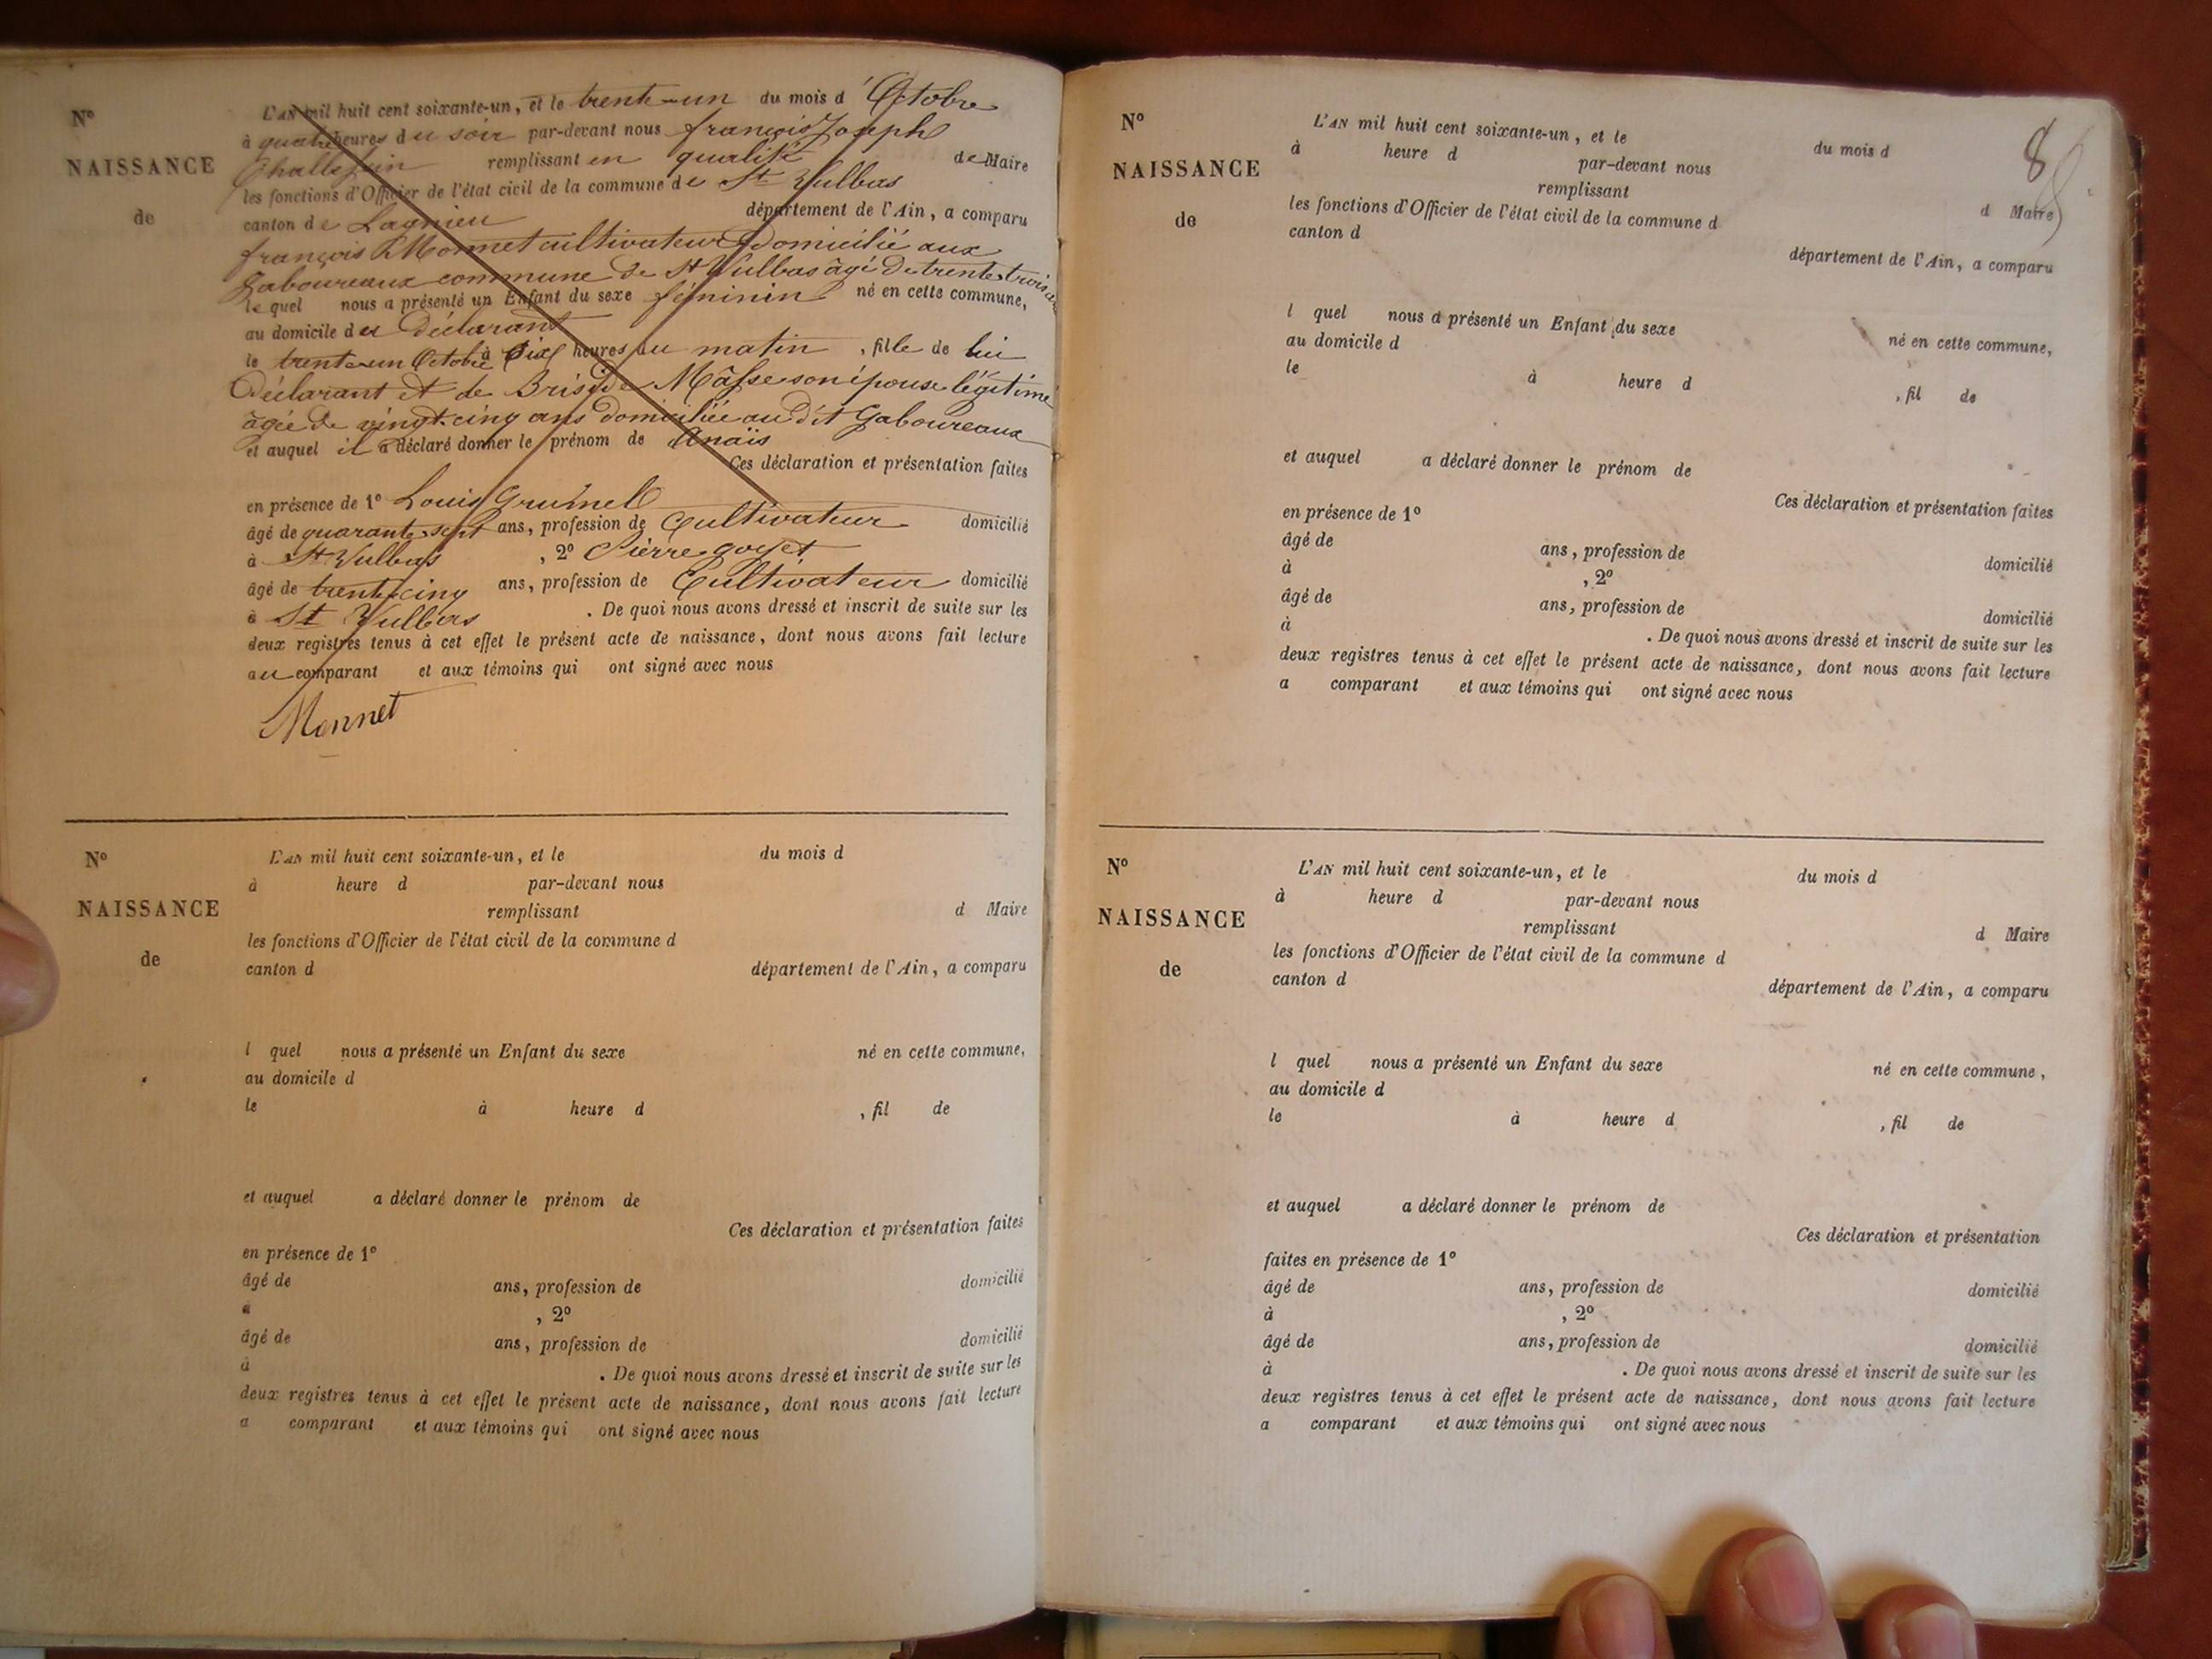 N°
NAISSANCE
de
L'AN mil huit cent soixante-un, et le trente-un du mois d'Octobre
à quatre heures du soir par-devant nous françois Joseph
remplissant en qualité de Maire
les fonctions d'Officier de l'état civil de la commune de St Vulbas
canton de Lagnieu département de l'Ain, a comparu
françois Monnet cultivateur domicilié aux
Gaboureaux commune de St Vulbas âgé de trente trois ans
lequel nous a présenté un Enfant du sexe féminin né en cette commune,
au domicile du déclarant
le trente-un Octobre à dix heures du matin, fille de lui
Déclarant et de Masse son épouse légitime
âgée de vingt-cinq ans domiciliée au dit Gaboureaux
et auquel il a déclaré donner le prénom de Anaïs
Ces déclaration et présentation faites
en présence de 1° Louis Grumel
âgé de quarante sept ans, profession de Cultivateur domicilié
à St Vulbas, 2° Pierre goyet
âgé de trente cinq ans, profession de Cultivateur domicilié
à St Vulbas. De quoi nous avons dressé et inscrit de suite sur les
deux registres tenus à cet effet le présent acte de naissance, dont nous avons fait lecture
au comparant et aux témoins qui ont signé avec nous
Monnet
N°
NAISSANCE
de
L'AN mil huit cent soixante-un, et le du mois d
à heure d par-devant nous
remplissant d Maire
les fonctions d'Officier de l'état civil de la commune d
canton d département de l'Ain, a comparu
l quel nous a présenté un Enfant du sexe né en cette commune,
au domicile d
le à heure d , fil de
et auquel a déclaré donner le prénom de
Ces déclaration et présentation faites
en présence de 1°
âgé de ans, profession de domicilié
à , 2°
âgé de ans, profession de domicilié
à . De quoi nous avons dressé et inscrit de suite sur les
deux registres tenus à cet effet le présent acte de naissance, dont nous avons fait lecture
a comparant et aux témoins qui ont signé avec nous
8
N°
NAISSANCE
de
L'AN mil huit cent soixante-un, et le du mois d
à heure d par-devant nous
remplissant d Maire
les fonctions d'Officier de l'état civil de la commune d
canton d département de l'Ain, a comparu
l quel nous a présenté un Enfant du sexe né en cette commune,
au domicile d
le à heure d , fil de
et auquel a déclaré donner le prénom de
Ces déclaration et présentation faites
en présence de 1°
âgé de ans, profession de domicilié
à , 2°
âgé de ans, profession de domicilié
à . De quoi nous avons dressé et inscrit de suite sur les
deux registres tenus à cet effet le présent acte de naissance, dont nous avons fait lecture
a comparant et aux témoins qui ont signé avec nous
N°
NAISSANCE
de
L'AN mil huit cent soixante-un, et le du mois d
à heure d par-devant nous
remplissant d Maire
les fonctions d'Officier de l'état civil de la commune d
canton d département de l'Ain, a comparu
l quel nous a présenté un Enfant du sexe né en cette commune,
au domicile d
le à heure d , fil de
et auquel a déclaré donner le prénom de
Ces déclaration et présentation
faites en présence de 1°
âgé de ans, profession de domicilié
à , 2°
âgé de ans, profession de domicilié
à . De quoi nous avons dressé et inscrit de suite sur les
deux registres tenus à cet effet le présent acte de naissance, dont nous avons fait lecture
a comparant et aux témoins qui ont signé avec nous